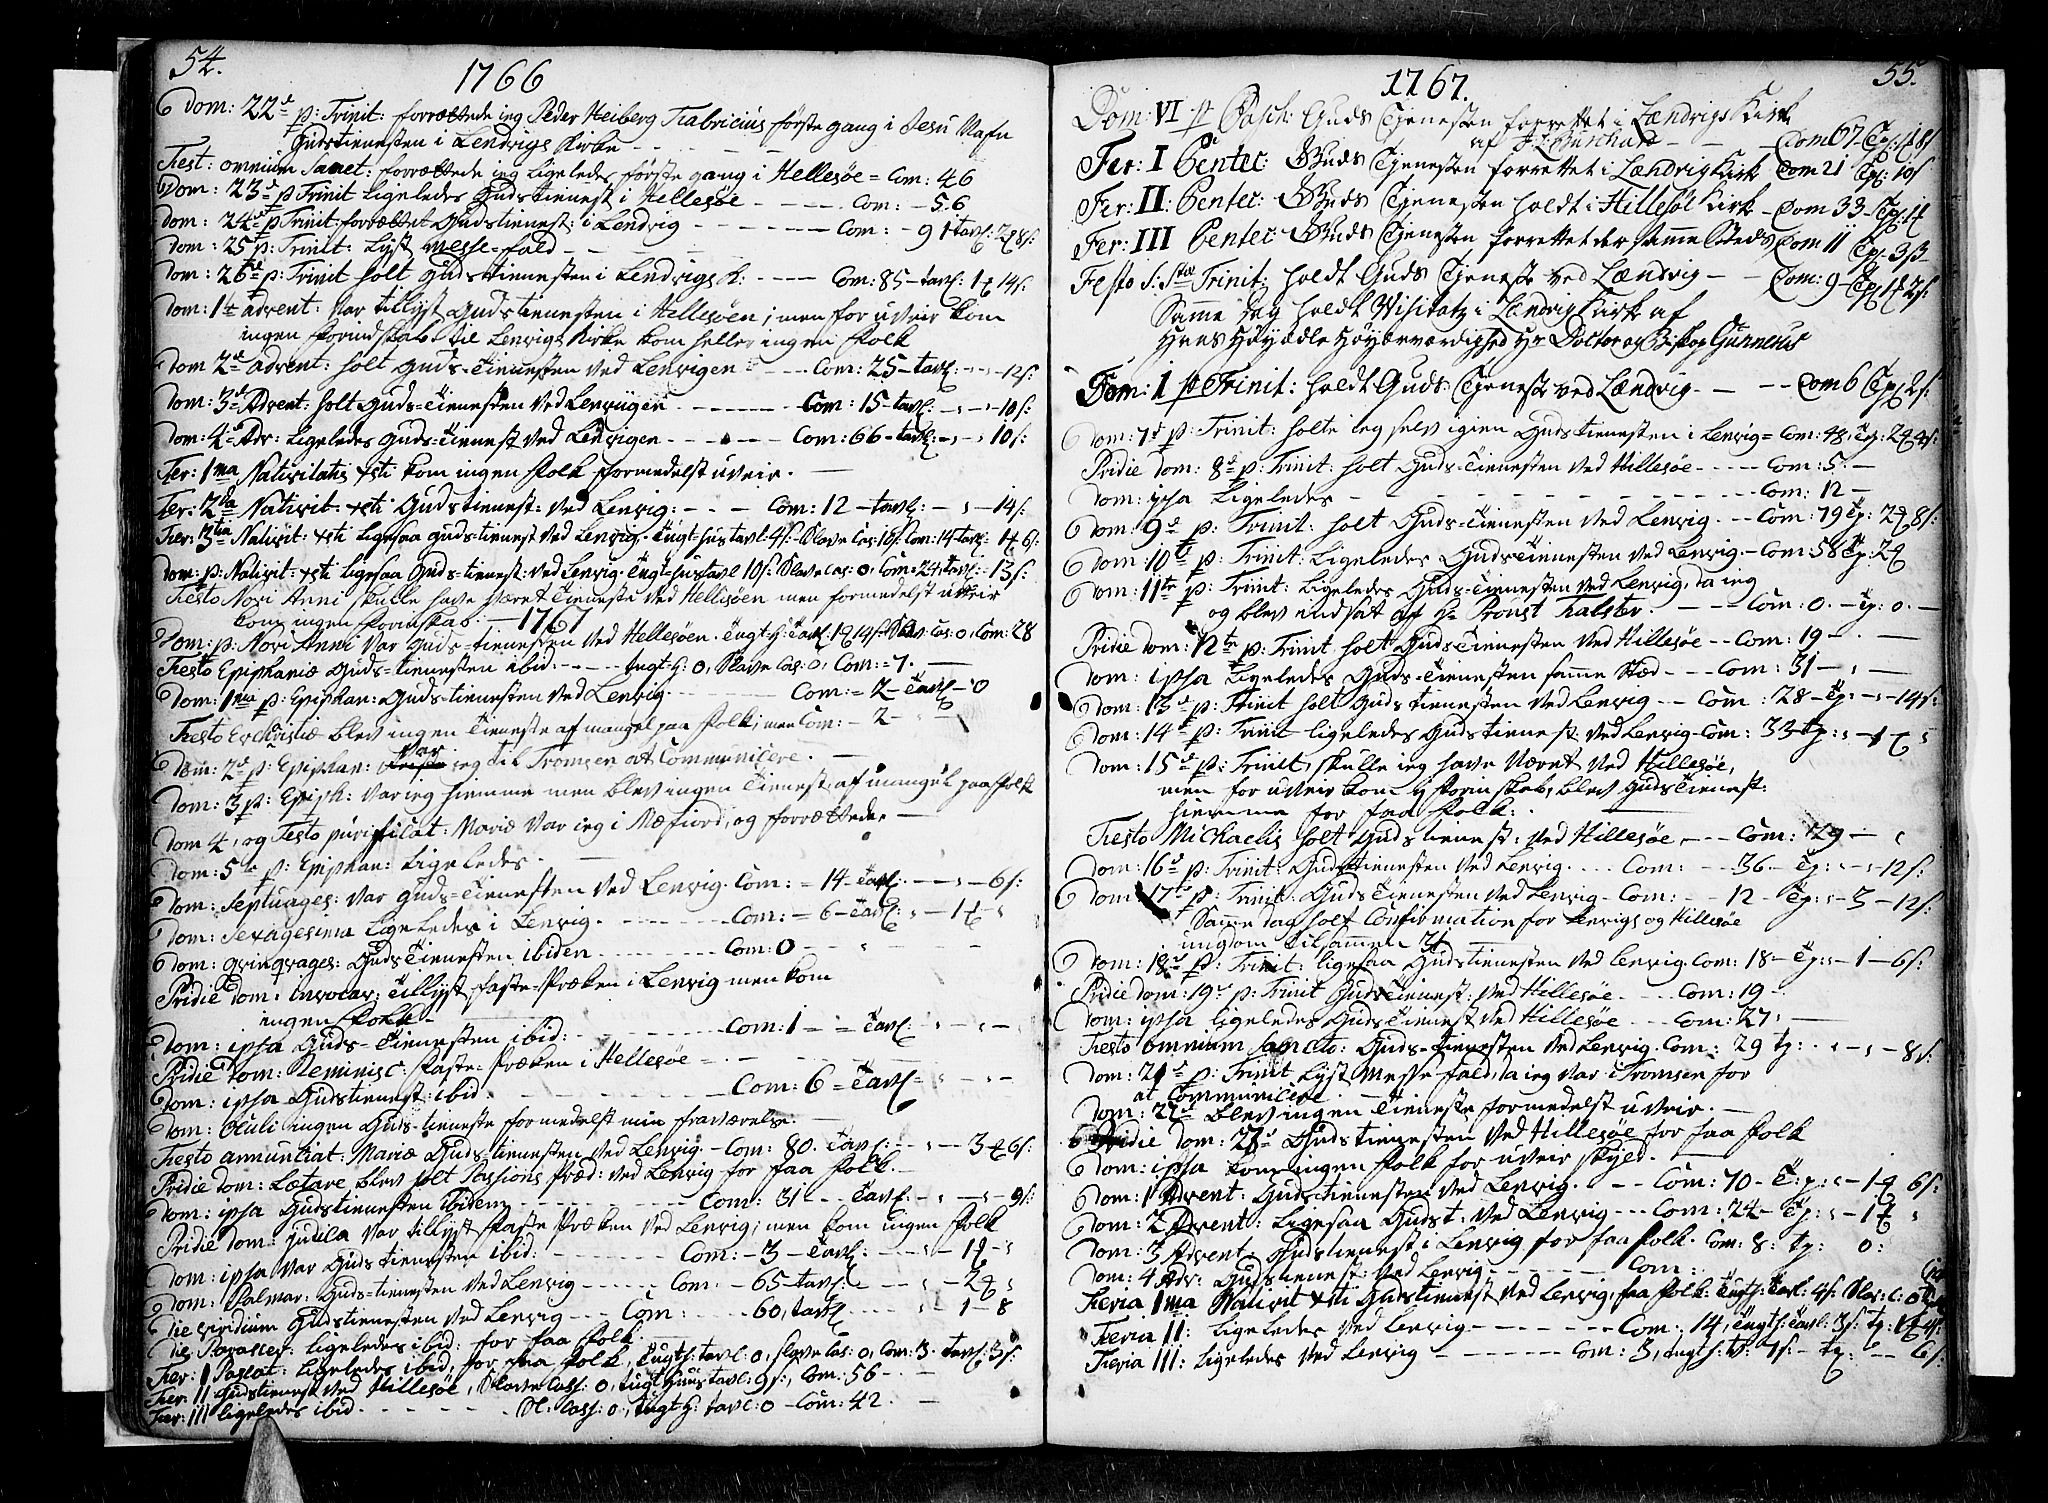 54.
1766
Dom: 22d p: Trinit: forrættede ieg Peder Heiberg Fabricius første gang i Jesu Nafn
Gudstienesten i Lendrigs Kirke
Fest: omnium Sanct: forrættede ieg ligeledes første gang i Hellesøe = Com: 46
Dom: 23d p Trinit ligeledes Gudstienest i Hellesøe - - - - Com: - 56
Dom: 24d p Trinit forrættet Gudstienest: i Lendrig - - - - Com: - 91 tavl: 2 8s:
Dom: 25 p: Trinit: Lyst messe-fald
Dom: 26d p: Trinit holt Guds tienesten i Lendrigs K: - - - - Com: 85 - tavl: 1 14s:
Dom: 1t advent: var tillyst Gudstienesten i Hellesøen; men for uveir kom
ingen Forindskab. til Lenvigs Kirke kom heller ingen Folk
Dom 2d advent: holt Guds-Tienesten ved Lenvigen - - - Com: 25 - tavl: - - 12s:
Dom: 3d Advent: holt Guds-Tienesten ved Lenviigen - - - - Com: 15 - tavl: - - 10s:
Dom: 4d Adv: Ligeledes Guds-Tienest ved Lenvigen - - - - Com: 66 - tavl: - - 10s:
Fer: 1ma Nativitatis Xsti kom ingen Folk formedelst uveir. -
Fer: 2da Nativit: Xsti Gudstienest: ved Lenvig: - - - Com: 12 - tavl: - - 14s:
Fer: 3tia Nativit: Xsti ligesaa gudstienest ved Lenvig. Tugt-hus tavl 4s: - Slave Cas: 10s. Com: 14 tavl: 1 6s:
Dom: p: Nativit: Xsti ligesaa Guds-tienest: ved Lenvig. Tugt-hus tavl 10s: Slave cas: 0, Com: 24, tavl: - 13s:
Festo Novi Anni skulle have været Tieneste ved Hellisøen men formedelst uveir
kom ingen Forinskab. - 1767
Dom: p: Novi Anni var Guds-tienesten ved Hellesøen. Tugt-H: Tavl 1 14s: Cas: 0, Com: 28
Festo Epiphaniæ Guds-tienesten ibid: - - - - tugt-h: 0, Slave Cas: 0, Com: = 7. -
Dom: 1ma p: Epiphan: Guds-tienesten ved Lenvig - - - - Com: = 2 - Tavl - 0
Festo blev ingen Tieneste af mangel paa Folk; men Com: - 2 -
Dom: 2d p: Epiphan: var ieg til Tromsen at Communicere. -
Dom: 3 p: Epiph: var ieg hiemme men blev ingen Tienest af mangel paa Folk
Dom 4, og Festo purificat: Mariæ var ieg i Mæfiord, og forrættede. -
Dom: 5te p: Epiphan: Ligeledes.
Dom: Septuages: var Guds-Tienesten ved Lenvig. Com: = 14 - Tavl: - - 6s:
Dom: Sexagesima Ligeledes i Lenvig. - - - - Com: = 6 - Tavl: - 1
Dom: qvinqvages: Guds Tienesten ibiden - - - - Com: 0
Pridie Dom: invocav: Tillyst Faste-Præken i Lenvig men kom
ingen Folk -
Dom: ipsa Guds-Tienesten ibid: - - - - Com: 1 - = Tavl:
Pridie Dom: Reminisc: Faste-Præken i Hellesøe = - - -
Dom: ipsa Gudstienest: ibid. - - - - Com: 6 = Tavl =
Dom: Oculi ingen Guds-tieneste formedelst min fraværelse. -
Festo annuntiat: Mariæ Guds-tienesten ved Lenvig - Com: 80. Tavl: - - 3 6s:
Pridie Dom: Lætare blev holt Passions Præd: ved Lenvig for faa Folk. -
Dom: ipsa Gudstienesten Ibidem - - - - Com: 31 - - Tavl: - - 9s:
Pridie Dom: Judica var tillyst Faste-Præken ved Lenvig; men kom ingen Folk
Dom: ipsa var Gudstienesten ibid: - - - - Com: - 3 - Tavl: - - 1
Dom: Palmar: Guds-tienesten ved Lenvig - - - - Com: - 65 - tavl: - - 2
Die viridium Gudstienesten ved Lenvig - - - Com: - - 60, tavl - - 1 - 8
Die Parascev: ligeledes ibid: for faa Folk. -
Fer: I Paschat: Ligeledes ibid, for faa Folk, Tugth: tavl: 0, Slave Cas: 0, Com: 3. tavl: 3s:
Fer: II Gudstienest ved Hillesøe, Slave Cass: 0, tugt Huus tavl: 9s:, Com: 56 -
Fer: III ligeledes ibid. - - - - Sl: Cass: 0, tugt H: tavl: 0 - Com: 42. -
1767.
55.
Dom: VI p Pasch: Guds Tjenesten forrettet i Lændvigs Kirk
af Burchard - - - Com 67 - Tp: 1 8s
Fer: I Pentec: Guds Tjenesten forrettet i Lændvig Kirk Com 21 Tp: 10s
Fer: II: Pentec: Guds Tjenesten holdt i Hillesøe Kirk - Com 33 - Tp: 1
Fer: III Pentec - Guds Tjenesten forrettet der samme Steds Com 11 Tp: 3s -
Festo S: Stæ Trinit: holdt Guds Tjenest ved Lændvig - - Com: 9 - Tp 1 2s:
Samme dag holdt Visitatz i Lændvig Kirk af
Hans Høyædle Høyærværdighed Hr Doctor og Biskop Gunnerus
Dom: I p Trinit: holdt Guds Tjenest ved Lændvig. - - - Com 6 Tp 2s:
Dom: 7d p: Trinit: holte ieg selv igien Gudstienesten i Lenvig = Com: 48, Tp: 2 4s:
Pridie Dom: 8d p: Trinit: holt Guds-Tienesten ved Hillesøe - - - - Com: 5. -
Dom: ipsa Ligeledes - - - - Com: 12 -
Dom: 9d p: Trinit: holt Guds-Tienesten ved Lenvig. - - Com: 79 Tp: 2 8s:
Dom: 10d p: Trinit: Ligeledes Guds Tienesten ved Lenvig - Com 58 Tp: 2
Dom: 11te p: Trinit: Ligeledes Guds-Tienesten ved Lenvig, da ieg
og blev indsat af Hr Proust Falster. - - - Com: 0. - Tp: 0. -
Pridie Dom: 12te p: Trinit holt Guds Tienesten ved Hillesøe - - Com: 19 -
Dom: ipsa Ligeledes Guds-Tienesten samme Stæd - - - Com: 31 - -
Dom: 13d p: Trinit holt Guds tienesten ved Lenvig - - Com: 28 - Tp: - - 14s:
Dom: 14d p: Trinit ligeledes Guds tienest: ved Lenvig - Com: 33 Tp: - 1
Dom: 15d p: Trinit, skulle ieg have været ved Hillesøe,
men for uveir kom ey Forinskab, blev Guds Tienest:
hiemma for faa Folk.
Festo Michaelis holt Guds tienest: ved Hillesøe, - - - Com: 49 -
Dom: 16d p: Trinit: Gudstienesten ved Lenvig. - - - Com: - - 36 - Tp: - - 12s:
Dom: 17de p: Trinit: Guds Tienesten ved Lenvig - Com: - - 12 Tp: - 3 - 12s:
Samme dag holt Confirmation for Lenvigs og Hillesøe
ungdom tilsammen 21
Dom: 18d p: Trinit: ligesaa Gudstienesten ved Lenvig. Com: 18 - Tp: - 1 - 6s:
Pridie Dom: 19d p: Trinit Guds Tienest: ved Hillesøe - - - Com: 19 -
Dom: ipsa ligeledes Guds Tienest ved Hillesøe - - - Com: 27. -
Festo omnium sancto: Guds-tienesten ved Lenvig. Com: 29 tp: - - 8s:
Dom: 21d p: Trinit Lyst Messe-fald, da ieg var i Tromsen for
at Communicere. -
Dom: 22d blev ingen Tieneste formedelst uveir. -
Pridie Dom: 23d Gudstienesten ved Hillesøe for faa Folk
Dom: ipsa kom ingen Folk for uveir skyld. -
Dom: 1 Advent: Guds-tienesten ved Lenvig. - - Com: 70 - T: p: - 1 6s:
Dom: 2 Advent: Ligesaa Gudst: ved Lenvig - - - Com: 24 - Tp: - 1
Dom: 3 Advent. Gudstienest i Lenvig for faa Folk. Com: 8: tp: 0:
Dom: 4 Adv: Gudstienest: ved Lenvig - - - - Com:
Feria 1ma Nativit Xsti Gudstienest ved Lenvig, faa Folk: Tugth: Tavl: 4s: Slav: C: 0
Feria II: Ligeledes ved Lenvig - - - - Com: 14, Tugth: Tavl: 3s: tp: 1 4s:
Feria III: ligeledes ved Lenvig - - - - Com: 3, tugth: t: 1s: - tp: - 6s: